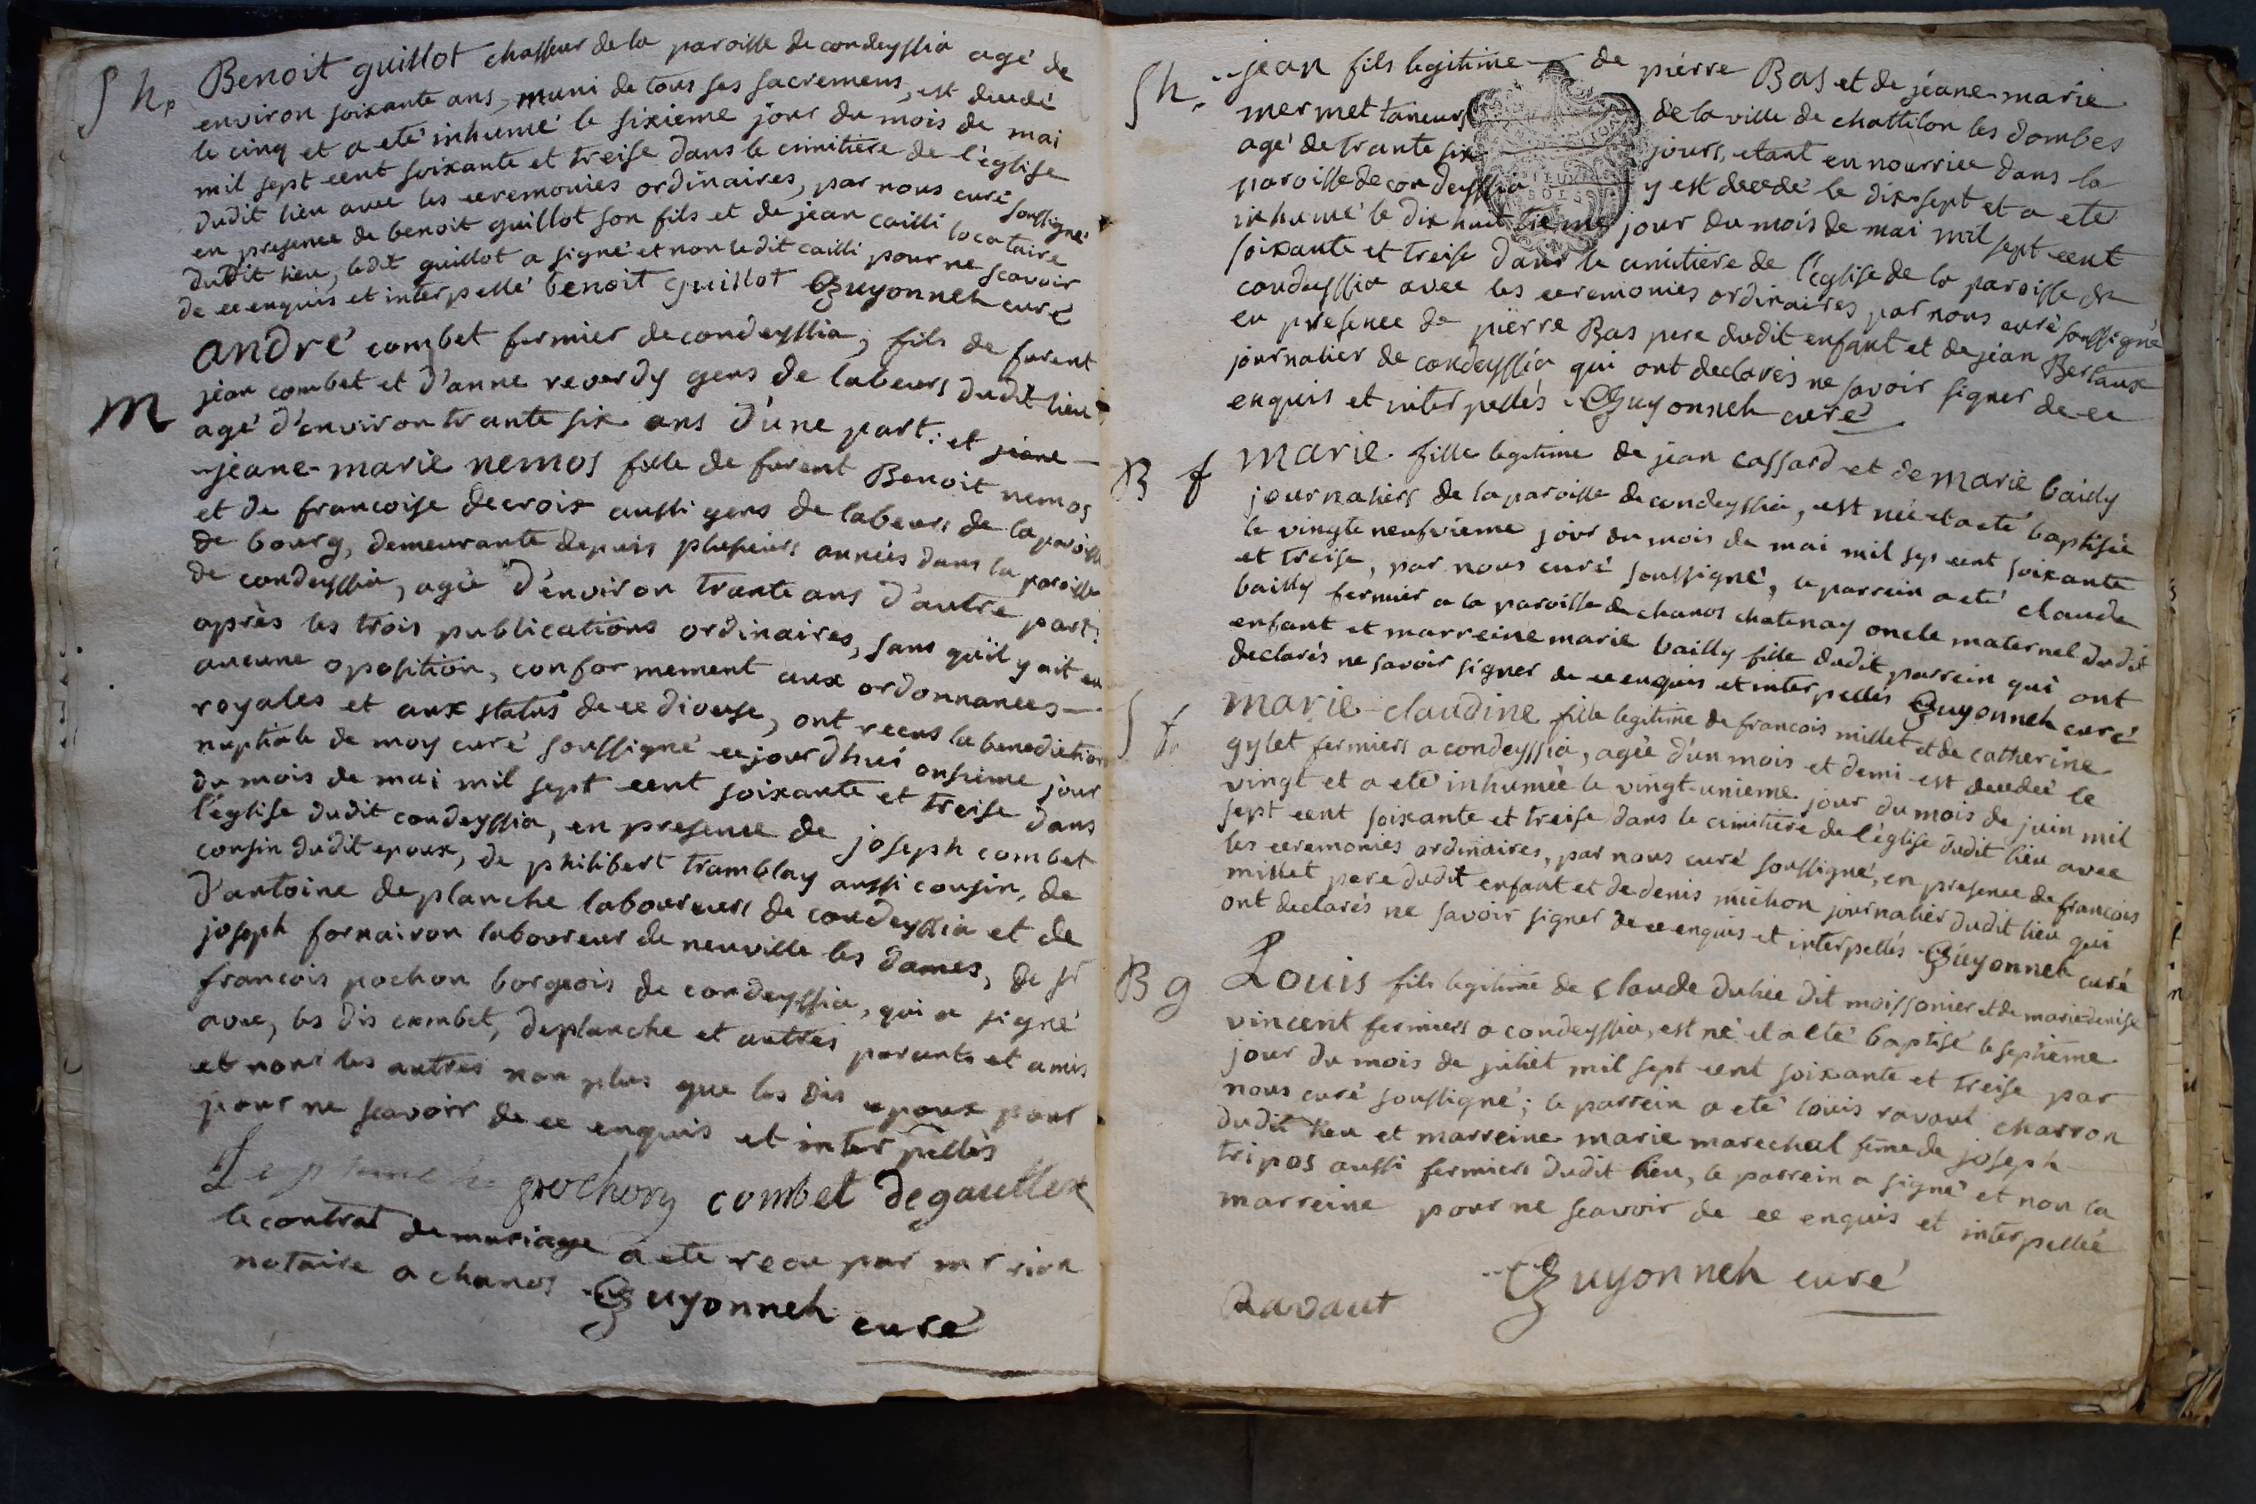 S h. Benoit guillot chasseur de la paroisse de condeyssia agé de
environ soixante ans, muni de tous ses sacremens, est decedé
le cinq et a eté inhumé le sixieme jour du mois de mai
mil sept cent soixante et treise dans le cimitiere de l'église
dudit lieu avec les ceremonies ordinaires, par nous curé soussigné
en presence de benoit guillot son fils et de jean cailli locataire
dudit lieu, ledit guillot a signé et non ledit cailli pour ne scavoir
de ce enquis et interpellé benoit guillot Guyonneh curé
M andré combet fermier de condeyssia, fils de furent
jean combet et d'anne reverdy gens de labeurs dudit lieu
agé d'environ trante six ans d'une part: et jeane
jeane-marie nemos fille de furent Benoit nemos
et de francoise decroix aussi gens de labeurs de la paroisse
de bourg, demeurante depuis plusieurs années dans la paroisse
de condeyssia, agée d'environ trante ans d'autre part:
après les trois publications ordinaires, sans qu'il y ait eu
aucune oposition, conformement aux ordonnances
royales et aux statuts de ce diocese, ont recus la benediction
nuptiale de moy curé soussigné cejourdhui onsieme jour
du mois de mai mil sept cent soixante et treise dans
l'église dudit condeyssia, en presence de joseph combet
cousin dudit epoux, de philibert tramblay aussi cousin, de
d'antoine deplanche laboureurs de condeyssia et de
joseph fornairon laboureur de neuville les dames, de sr
francois pochon borgeois de condeyssia, qui a signé
avec, les dis combet, deplanche et autres parants et amis
et non les autres non plus que les dis epoux pour
pour ne scavoir de ce enquis et interpellés
pochon combet
le contrat de mariage a ete recu par mr
notaire a chanos Guyonneh curé
S h. jean fils legitime de pierre Bas et de jeane-marie
mermet taneurs de la ville de chattilon les dombes
agé de trante six jours, etant en nourrice dans la
paroisse de condeyssia y est decedé le dix-sept et a eté
inhumé le dix huitieme jour du mois de mai mil sept cent
soixante et treise dans le cimitiere de l'église de la paroisse de
condeyssia avec les ceremonies ordinaires par nous curé soussigné
en presence de pierre Bas pere dudit enfant et de jean Bertaux
journalier de condeyssia qui ont declarés ne savoir signer de ce
enquis et interpellés Guyonneh curé
B f marie fille legitime de jean cassard et de marie bailly
journaliers de la paroisse de condeyssia, est née et a eté baptisée
le vingte neufvieme jour du mois de mai mil sep cent soixante
et treise, par nous curé soussigné, le parrein a eté claude
bailly fermier a la paroisse de chanos chatenay oncle maternel dudit
enfant et marreine marie bailly fille dudit parrein qui ont
declarés ne savoir signer de ce enquis et interpellés Guyonneh curé
S f. marie-claudine fille legitime de francois millet et de catherine
gylet fermiers a condeyssia, agée d'un mois et demi est decedée le
vingt et a eté inhumée le vingt-unieme jour du mois de juin mil
sept cent soixante et treise dans le cimitiere de l'église dudit lieu avec
les ceremonies ordinaires, par nous curé soussigné, en presence de francois
millet pere dudit enfant et de denis michon journalier dudit lieu qui
ont declarés ne savoir signer de ce enquis et interpellés Guyonneh curé
B g Louis fils legitime de claude duhie dit moissonier et de marie denise
vincent fermiers a condeyssia, est né et a eté baptisé le septieme
jour du mois de juliet mil sept cent soixante et treise par
nous curé soussigné; le parrein a eté louis ravaut charron
dudit lieu et marreine marie marechal feme de joseph
tripos aussi fermiers dudit lieu, le parrein a signé et non la
marreine pour ne scavoir de ce enquis et interpellée
Ravaut Guyonneh curé